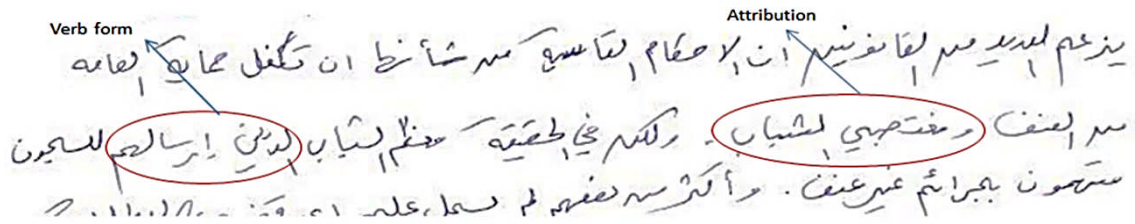 Verb form Attribution
يزعم العديد من القانونيين ان الاحكام القاسية من شأنها ان تكفل حماية العامه
من العنف ومغتصبي الشباب. ولكن في الحقيقة معظم الشباب الذين إرسالهم للسجون
متهمون بجرائم غير عنف. وأكثر من نصفهم لم